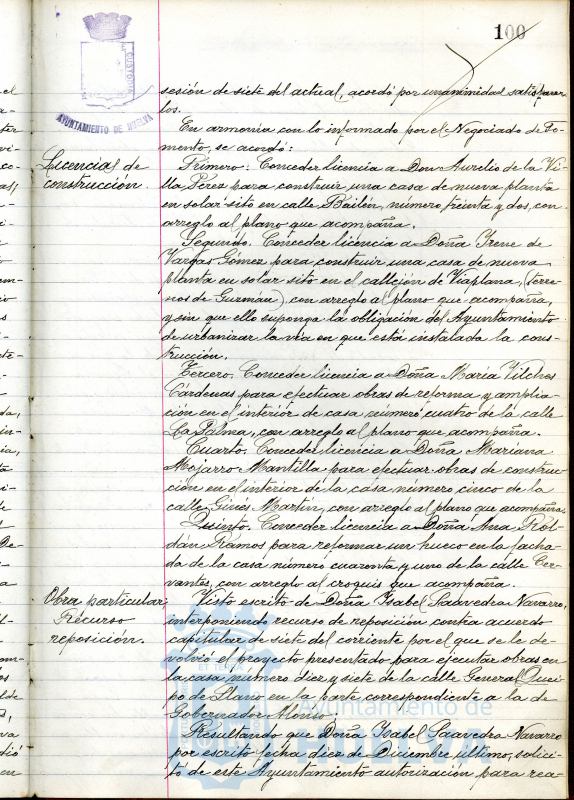 100
CUSTODIA
AYUNTAMIENTO DE HUELVA
sesión de siete del actual, acordó por unanimidad satisfacer
los.
En armonía con lo informado por el Negociado de Fo-
mento, se acordó:
Licencias de
construcción.
Primero: Conceder licencia a Don Aurelio de la Vi-
lla Pérez para construir una casa de nueva planta
en solar sito en calle Bailén, número treinta y dos, con
arreglo al plano que acompaña.
Segundo. Conceder licencia a Doña Irene de
Vargas Gómez para construir una casa de nueva
planta en solar sito en el callejón de Viaplana, (terre-
nos de Guzmán) con arreglo al plano que acompaña,
y sin que ello suponga la obligación del Ayuntamiento
de urbanizar la vía en que está instalada la cons-
trucción.
Tercero. Conceder licencia a Doña María Vilches
Cárdenas para efectuar obras de reforma y amplia-
ción en el interior de casa número cuatro de la calle
La Palma, con arreglo al plano que acompaña.
Cuarto. Conceder licencia a Doña Mariana
Mojarro Mantilla para efectuar obras de construc-
ción en el interior de la casa número cinco de la
calle Ginés Martín, con arreglo al plano que acompaña.
Quinto. Conceder licencia a Doña Ana Rol-
dán Ramos para reformar un hueco en la facha-
da de la casa número cuarenta y uno de la calle Cer-
vantes, con arreglo al croquis que acompaña.
Obra particular.
Recurso
reposición.
Visto escrito de Doña Isabel Saavedra Navarro,
interponiendo recurso de reposición contra acuerdo
capitular de siete del corriente por el que se le de-
volvió el proyecto presentado para ejecutar obras en
la casa número diez y siete de la calle General Quei-
po de Llano en la parte correspondiente a la de
Gobernador Alonso;
Resultando que Doña Isabel Saavedra Navarro
por escrito fecha diez de Diciembre último, solici-
tó de este Ayuntamiento autorización para rea-
Ayuntamiento de